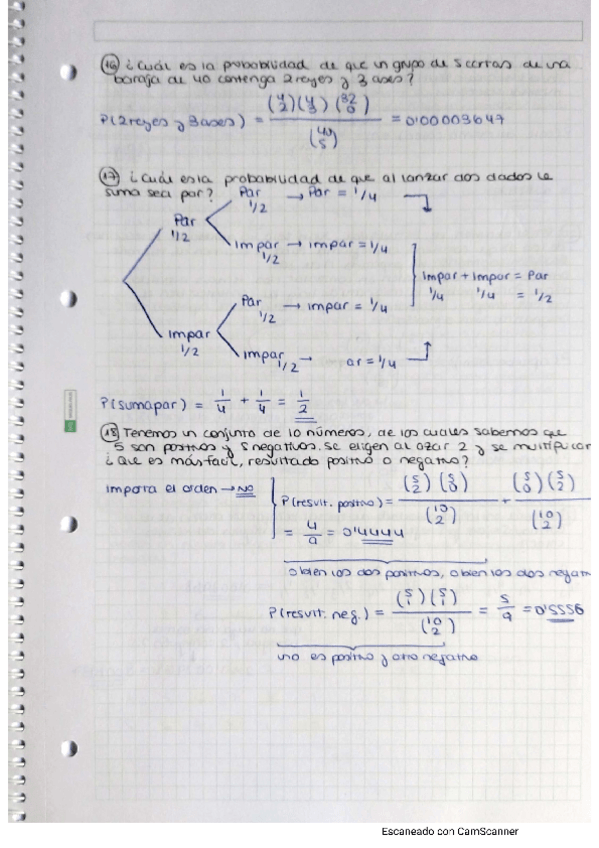 16 ¿Cuál es la probabilidad de que un grupo de 5 cartas de una
baraja de 40 contenga 2 reyes y 3 ases?
P(2 reyes y 3 ases) = (4 2)(4 3)(32 0) / (40 5) = 0'00003647
17 ¿Cuál es la probabilidad de que al lanzar dos dados la
suma sea par?
Par 1/2 → Par = 1/4
Par 1/2
Impar 1/2 → impar = 1/4
Impar + Impar = Par
1/4 1/4 = 1/2
Par 1/2 → impar = 1/4
Impar 1/2
Impar 1/2 → ar = 1/4
P(suma par) = 1/4 + 1/4 = 1/2
18 Tenemos un conjunto de 10 números, de los cuales sabemos que
5 son positivos y 5 negativos. Se eligen al azar 2 y se multiplican
¿Qué es más fácil, resultado positivo o negativo?
importa el orden → NO
P(result. positivo) = (5 2)(5 0) / (10 2) + (5 0)(5 2) / (10 2)
= 4/9 = 0'4444
o bien los dos positivos, o bien los dos negativ
P(result. neg.) = (5 1)(5 1) / (10 2) = 5/9 = 0'5556
uno es positivo y otro negativo
Escaneado con CamScanner